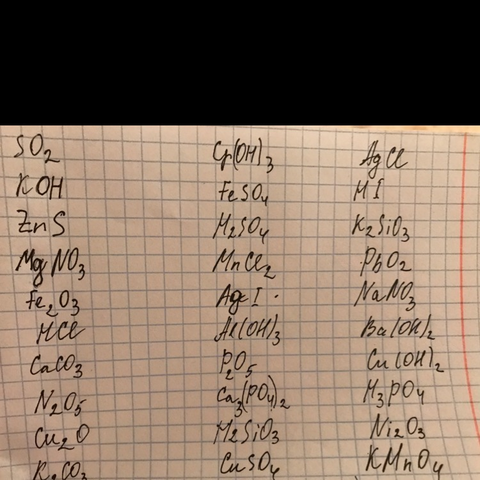 SO2 Cr(OH)3 AgCl
KOH FeSO4 HI
ZnS H2SO4 K2SiO3
MgNO3 MnCl2 PbO2
Fe2O3 AgI NaNO3
HCl Al(OH)3 Ba(OH)2
CaCO3 P2O5 Cu(OH)2
N2O5 Ca3(PO4)2 H3PO4
Cu2O H2SiO3 Ni2O3
K2CO3 CuSO4 KMnO4